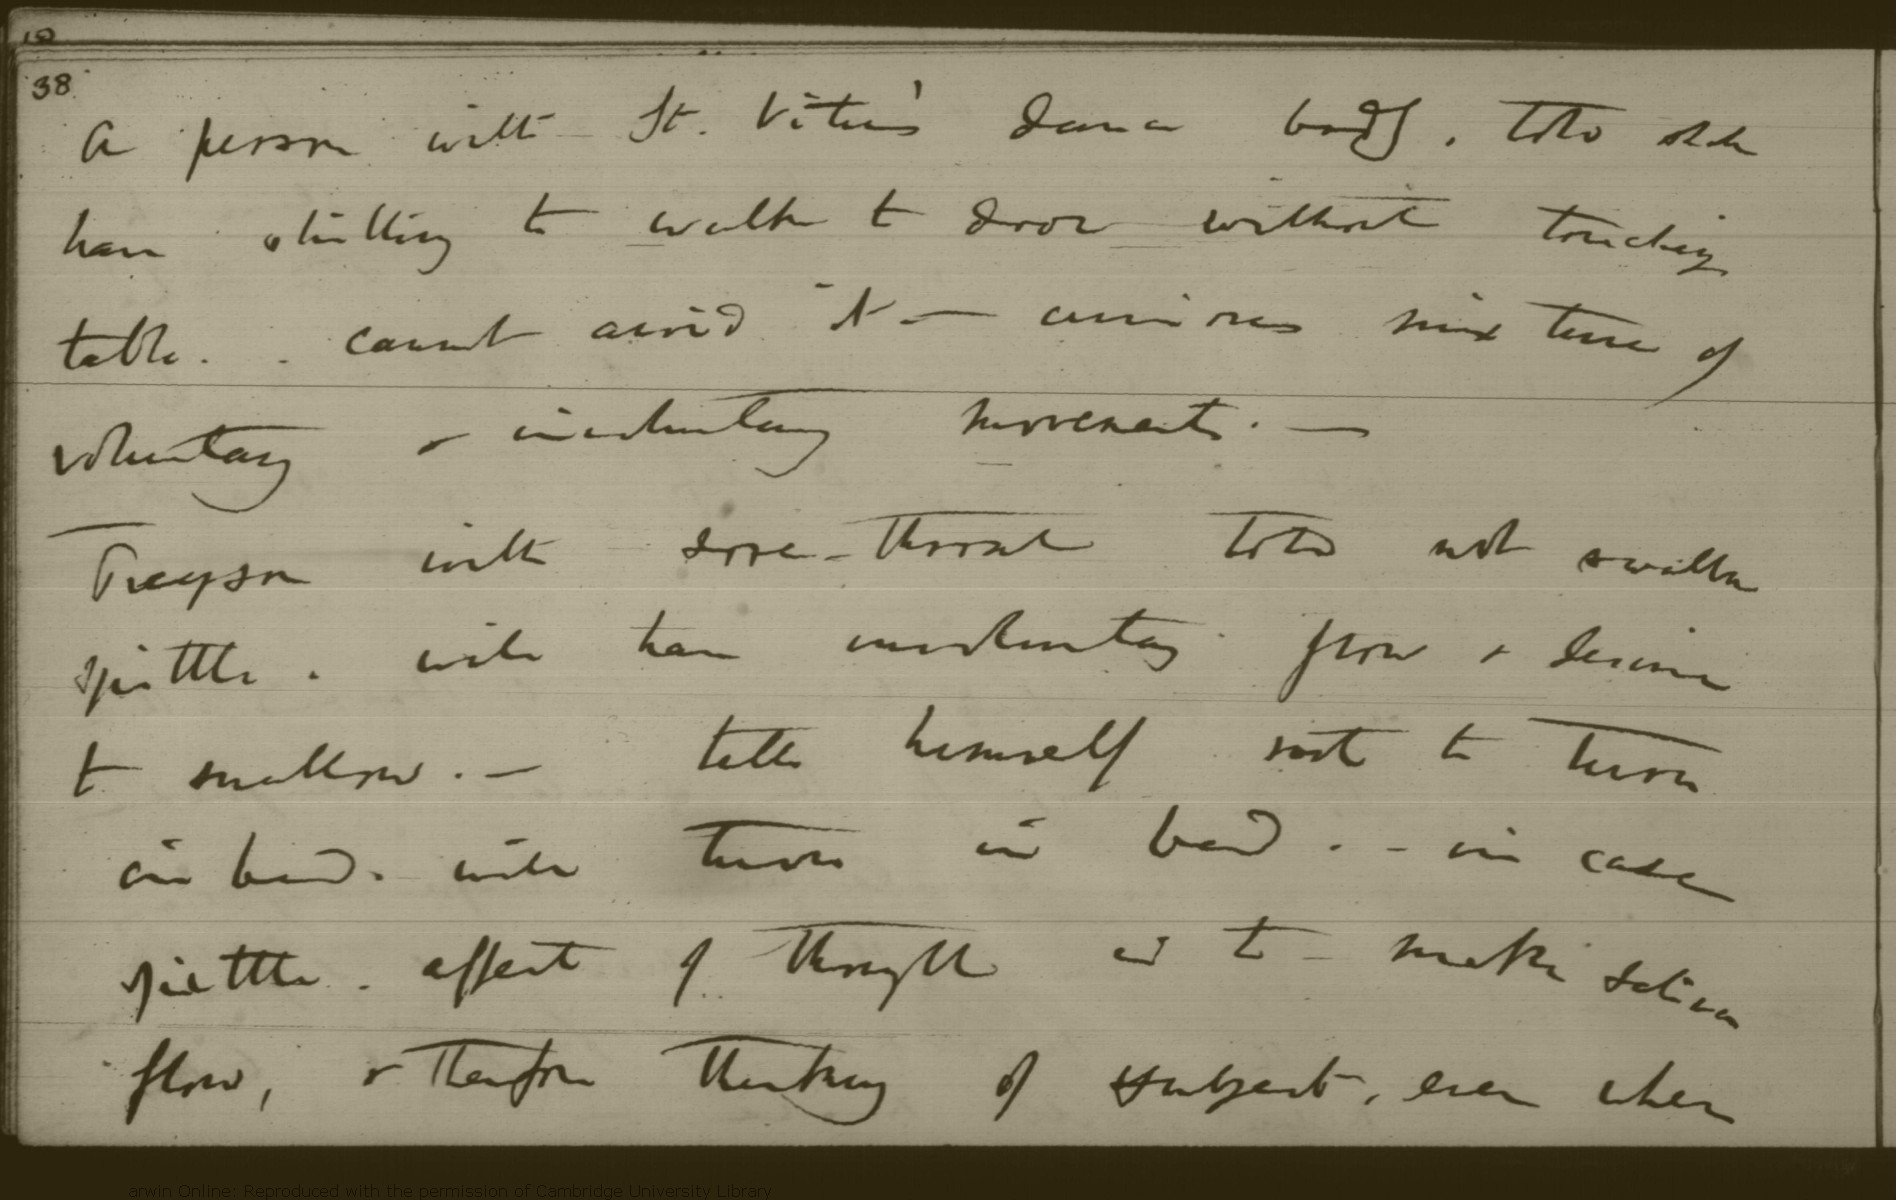 38
A person with St. Vitus' dance badly. told shd
have shilling to walk to door without touching
table. cannot avoid it — curious mixture of
voluntary & involuntary movements. —
with sore-throat told not swallow
spittle. will have involuntary flow & desire
to swallow. — tells himself not to turn
in bed. will turn in bed. - in case
spittle. effect of thought is to make saliva
flow, & therefore thinking of subject, even when
arwin Online: Reproduced with the permission of Cambridge University Library